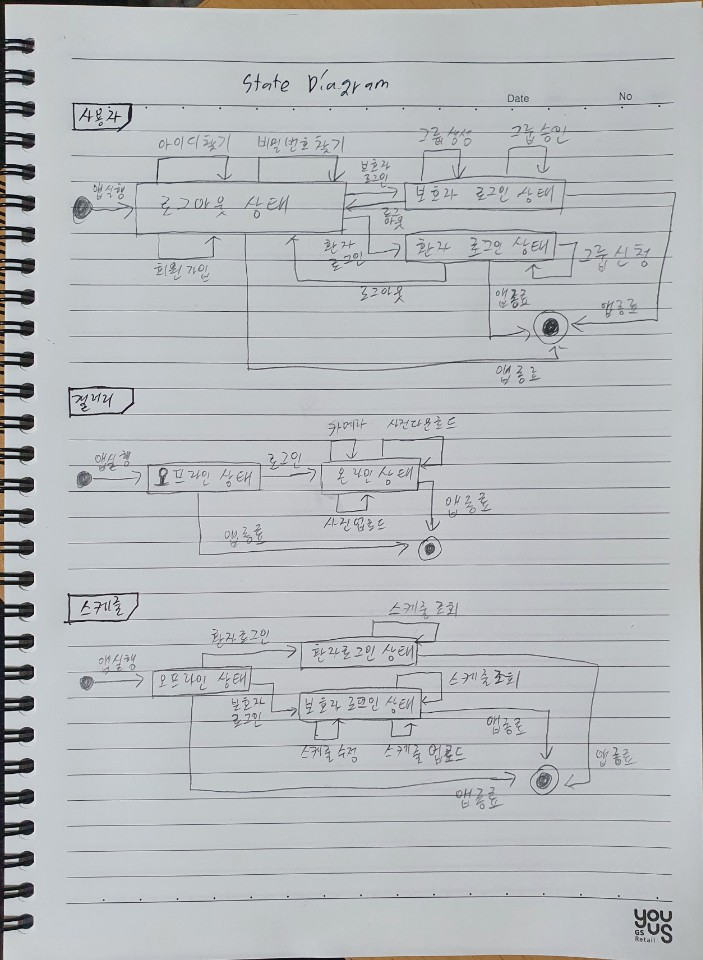 State Diagram
Date
No
사용자
아이디찾기
비밀번호 찾기
그룹생성
그룹승인
보호자
로그인
앱실행
로그아웃 상태
보호자 로그인 상태
로그
아웃
환자
로그인
환자 로그인 상태
그룹신청
회원가입
로그아웃
앱종료
앱종료
앱종료
갤러리
카메라
사진다운로드
앱실행
오프라인 상태
로그인
온라인 상태
사진업로드
앱종료
앱종료
스케줄
스케줄 조회
환자로그인
앱실행
환자로그인 상태
오프라인 상태
스케줄조회
보호자
로그인
보호자 로그인 상태
스케줄수정
스케줄 업로드
앱종료
앱종료
앱종료
YOU
US
GS
Retail